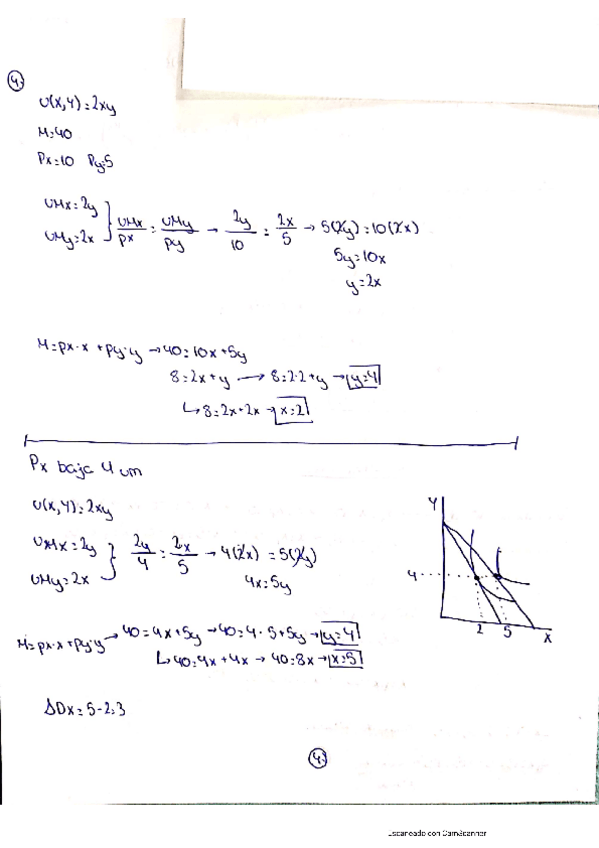 4.
U(x,y)=2xy
M=40
Px=10 Py=5
UMx=2y
UMy=2x } UMx/px = UMy/py → 2y/10 = 2x/5 → 5(2y)=10(2x)
5y=10x
y=2x
M=px·x+py·y → 40=10x+5y
8=2x+y → 8=2·2+y → y=4
↳ 8=2x+2x → x=2
Px baja 4 um
U(x,y)=2xy
UMx=2y
UMy=2x } 2y/4 = 2x/5 → 4(2x)=5(2y)
4x=5y
M=px·x+py·y → 40=4x+5y → 40=4·5+5y → y=4
↳ 40=4x+4x → 40=8x → x=5
ΔDx=5-2=3
Y
4
2 5 X
4.
Escaneado con CamScanner